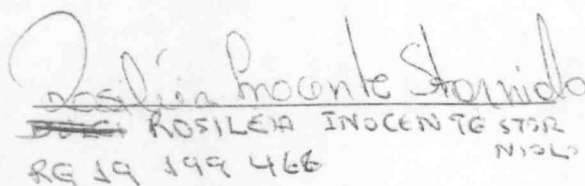 Rosiléia Inocente Storniolo
ROSILEIA INOCENTE STOR
NIOLO
RG 19 199 466